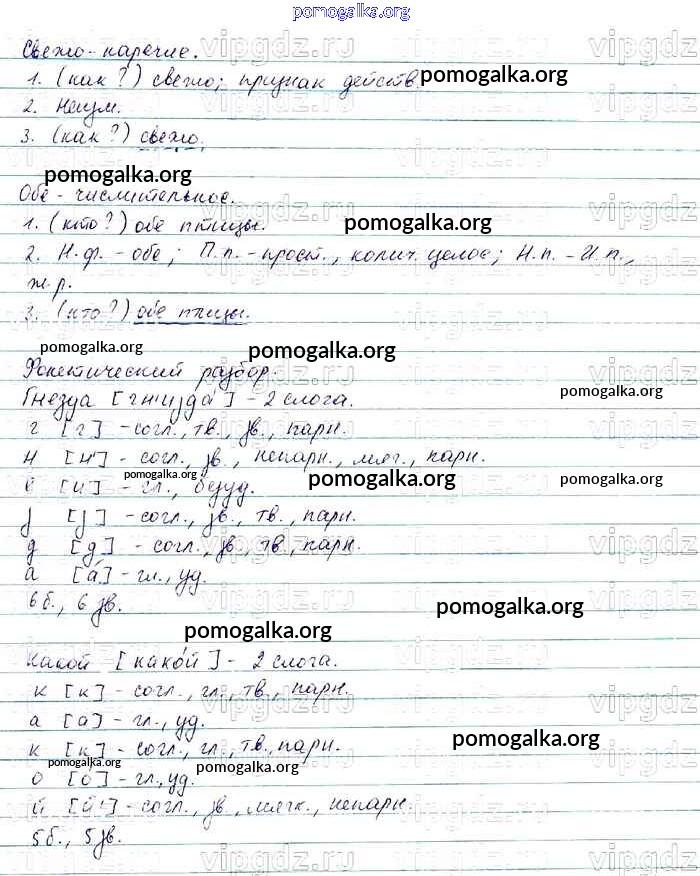 pomogalka.org
Свежо - наречие.
1. (как?) свежо; признак действ. pomogalka.org
2. Неизм.
3. (как?) свежо.
pomogalka.org
Обе - числительное.
1. (кто?) обе птицы. pomogalka.org
2. Н.ф. - обе; П.п. - прост., колич. целое; Н.п. - И.п.,
ж.р.
3. (кто?) обе птицы.
pomogalka.org pomogalka.org
Фонетический разбор.
pomogalka.org
Гнезда [гн'изда́] - 2 слога.
г [г] - согл., тв., зв., парн.
н [н'] - согл., зв., непарн., мяг., парн.
pomogalka.org pomogalka.org pomogalka.org
е [и] - гл., безуд.
з [з] - согл., зв., тв., парн.
д [д] - согл., зв., тв., парн.
а [а́] - гл., уд.
6 б., 6 зв. pomogalka.org
pomogalka.org
Какой [како́й'] - 2 слога.
к [к] - согл., гл., тв., парн.
а [а] - гл., уд.
к [к] - согл., гл., тв., парн. pomogalka.org
pomogalka.org pomogalka.org
о [о́] - гл., уд.
й [й'] - согл., зв., мягк., непарн.
5 б., 5 зв.
vipgdz.ru